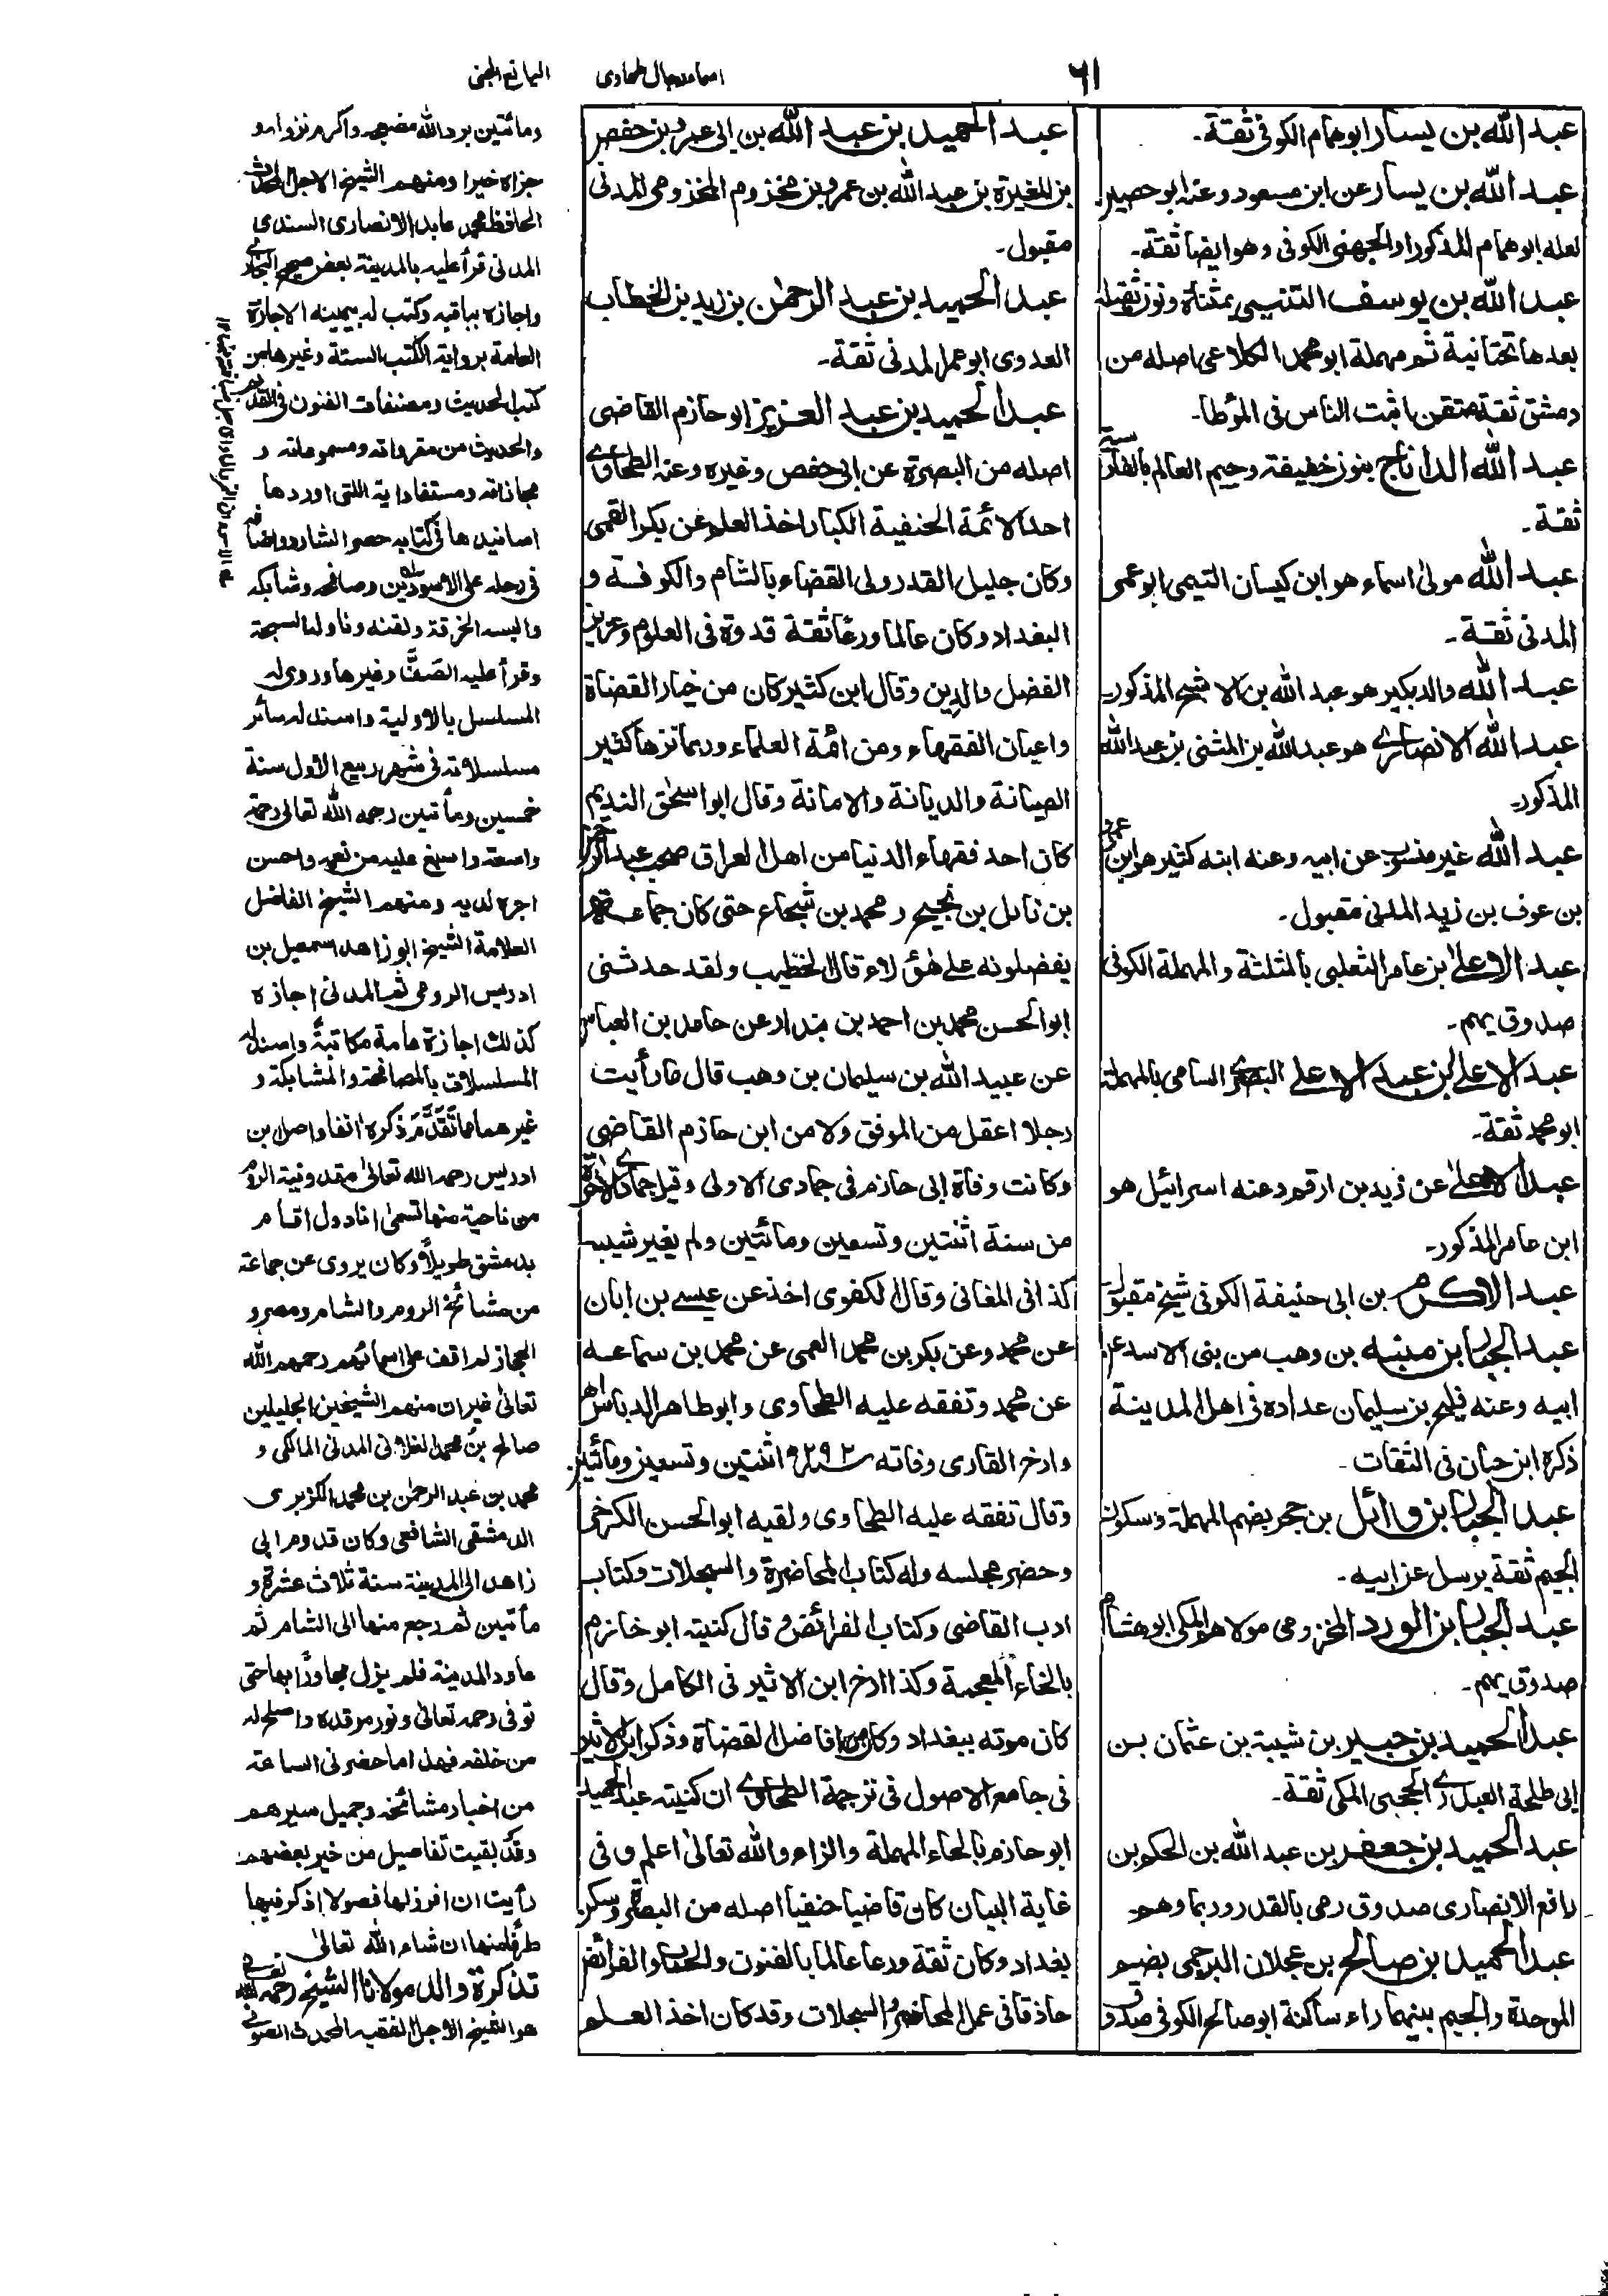 ٦١
اسماء رجال طحاوی
اليانع الجنى
عبد الله بن يسار ابو همام الكوفى ثقة۔
عبد الله بن يسار عن ابن مسعود وعنه ابو حصين
لعله ابو همام المذكور او الجهنى الكوفى وهو ايضا ثقة۔
عبد الله بن يوسف التنيسى بمثناة ونون ثقيلة
بعدها تحتانية ثم مهملة ابو محمد الكلاعى اصله من
دمشق ثقة متقن اثبت الناس فى المؤطا۔
عبد الله الداناج بنون خفيفة وجيم العالم بالفارسية
ثقة۔
عبد الله مولى اسماء هو ابن كيسان التيمى ابو عمر
المدنى ثقة۔
عبد الله والد بكير هو عبد الله بن الاشج المذكور۔
عبد الله الانصارى هو عبد الله بن المثنى بن عبد الله
المذكور۔
عبد الله غير منسوب عن ابيه وعنه ابنه كثير هو ابن عمرو
بن عوف بن زيد المدنى مقبول۔
عبد الاعلى بن عامر الثعلبى بالمثلثة والمهملة الكوفى
صدوق يهم۔
عبد الاعلى بن عبد الاعلى البصرى السامى بالمهملة
ابو محمد ثقة۔
عبد الاعلى عن زيد بن ارقم وعنه اسرائيل هو
ابن عامر المذكور۔
عبد الاكرم بن ابى حنيفة الكوفى شيخ مقبول
عبد الجبار بن منبه بن وهب من بنى الاسد عن
ابيه وعنه فليح بن سليمان عداده فى اهل المدينة
ذكره ابن حبان فى الثقات۔
عبد الجبار بن وائل بن حجر بضم المهملة وسكون
الجيم ثقة يرسل عن ابيه۔
عبد الجبار بن الورد المخزومى مولاهم المكى ابو هشام
صدوق يهم۔
عبد الحميد بن جبير بن شيبة بن عثمان بن
ابى طلحة العبدرى الحجبى المكى ثقة۔
عبد الحميد بن جعفر بن عبد الله بن الحكم بن
رافع الانصارى صدوق رمى بالقدر وربما وهم۔
عبد الحميد بن صالح بن عجلان البرجمى بضم
الموحدة والجيم بينهما راء ساكنة ابو صالح الكوفى صدوق
عبد الحميد بن عبد الله بن ابى عمرو بن حفص
بن المغيرة بن عبد الله بن عمرو بن مخزوم المخزومى المدنى
مقبول۔
عبد الحميد بن عبد الرحمٰن بن زيد بن الخطاب
العدوى ابو عمر المدنى ثقة۔
عبد الحميد بن عبد العزيز ابو حازم القاضى
اصله من البصرة عن ابى حفص وغيره وعنه الطحاوى
احد الائمة الحنفية الكبار اخذ العلم عن بكر القمى
وكان جليل القدر ولى القضاء بالشام والكوفة و
البغداد وكان عالما ورعا ثقة قدوة فى العلوم وعزيز
الفضل والدين وقال ابن كثير كان من خيار القضاة
واعيان الفقهاء ومن ائمة العلماء وربما نزها كثير
الصيانة والديانة والامانة وقال ابو اسحٰق النديم
كان احد فقهاء الدنيا من اهل العراق صحب عبد الرحمٰن
بن نائل بن نجيح ومحمد بن شجاع حتى كان جماعتهم
يفضلونه على هٰؤلاء قال الخطيب ولقد حدثنى
ابو الحسن محمد بن احمد بن بندار عن حامد بن العباس
عن عبيد الله بن سليمان بن وهب قال ما رأيت
رجلا اعقل من الموفق ولا من ابن حازم القاضى
وكانت وفاة ابى حازم فى جمادى الاولى وقيل جمادى الاخرى
من سنة اثنتين وتسعين ومائتين ولم يغير شيبه
كذا فى المغانى وقال الكفوى اخذ عن عيسى بن ابان
عن محمد وعن بكر بن محمد العمى عن محمد بن سماعه
عن محمد وتفقه عليه الطحاوى وابو طاهر الدباس اهـ
وارخ القارى وفاته سنه ۲۹۲ اثنتين وتسعين ومائتين
وقال تفقه عليه الطحاوى ولقيه ابو الحسن الكرخى
وحضر مجلسه وله كتاب المحاضرة والسجلات وكتاب
ادب القاضى وكتاب الفرائض وقال كنيته ابو خازم
بالخاء المعجمة وكذا ارخ ابن الاثير فى الكامل وقال
كان موته ببغداد وكان من افاضل القضاة وذكر ابن الاثير
فى جامع الاصول فى ترجمة الطحاوى ان كنيته عبد الحميد
ابو حازم بالحاء المهملة والزاء والله تعالىٰ اعلم وفى
غاية البيان كان قاضيا حنفيا اصله من البصرة وسكن
بغداد وكان ثقة ورعا عالما بالفنون والحساب والفرائض
حاذقا فى عمل المحاضر والسجلات وقد كان اخذ العلم
ومائتين برد الله مضجعه واكرم نزوله و
جزاه خيرا ومنهم الشيخ الاجل المحدث
الحافظ محمد عابد الانصارى السندى
المدنى قرأ عليه بالمدينة بعض صحيح البخارى
واجازه بباقيه وكتب له بيمينه الاجازة
العامة برواية الكتب الستة وغيرها من
كتب الحديث ومصنفات الفنون فى القديم
والحديث من مقرواته ومسموعاته و
مجازاته ومستفاداته اللتى اوردها
اسانيدها فى كتابه حصر الشارد واضافه
فى رحله على الاسودين وصافحه وشابكه
والبسه الخرقة ولقنه وناوله السبحة
وقرأ عليه الصفّ وغيرها وروى له
المسلسل بالاولية واسند له سائر
مسلسلاته فى شهر ربيع الاول سنة
خمسين ومأتين رحمه الله تعالى رحمة
واسعة واسبغ عليه من نعمه واحسن
اجره لديه ومنهم الشيخ الفاضل
العلامة الشيخ ابو زاهد اسمعيل بن
ادريس الرومى ثم المدنى اجازه
كذلك اجازة عامة مكاتبةً واسند له
المسلسلات بالمصافحة والمشابكة و
غيرهما مما تقدَّم ذكره انفا واصل ابن
ادريس رحمه الله تعالىٰ مقدونية الروم
من ناحية منها تسمى انادول اقام
بدمشق طويلاً وكان يروى عن جماعة
من مشائخ الروم والشام ومصر و
الحجاز لم اقف على اسمائهم رحمهم الله
تعالىٰ غير ان منهم الشيخين الجليلين
صالح بن محمد الفلانى المدنى المالكى و
محمد بن عبد الرحمٰن بن محمد الكزبرى
الدمشقى الشافعى وكان قدوم ابى
زاهد الى المدينة سنة ثلاث عشرة و
مأتين ثم رجع منها الى الشام ثم
عاود المدينة فلم يزل مجاورًا بها حتى
توفى رحمه تعالىٰ ونور مرقده واصلح له
من خلفه فهٰذا ما حضرنى الساعة
من اخبار مشائخه وجميل سيرهم
وقد بقيت تفاصيل من خبر بعضهم
رأيت ان افرز لها فصولا اذكر فيها
طرفا منها ان شاء الله تعالىٰ
تذكرة والد مولانا الشيخ رحمه الله تعالى
هو الشيخ الاجل الفقيه المحدث الصوفى